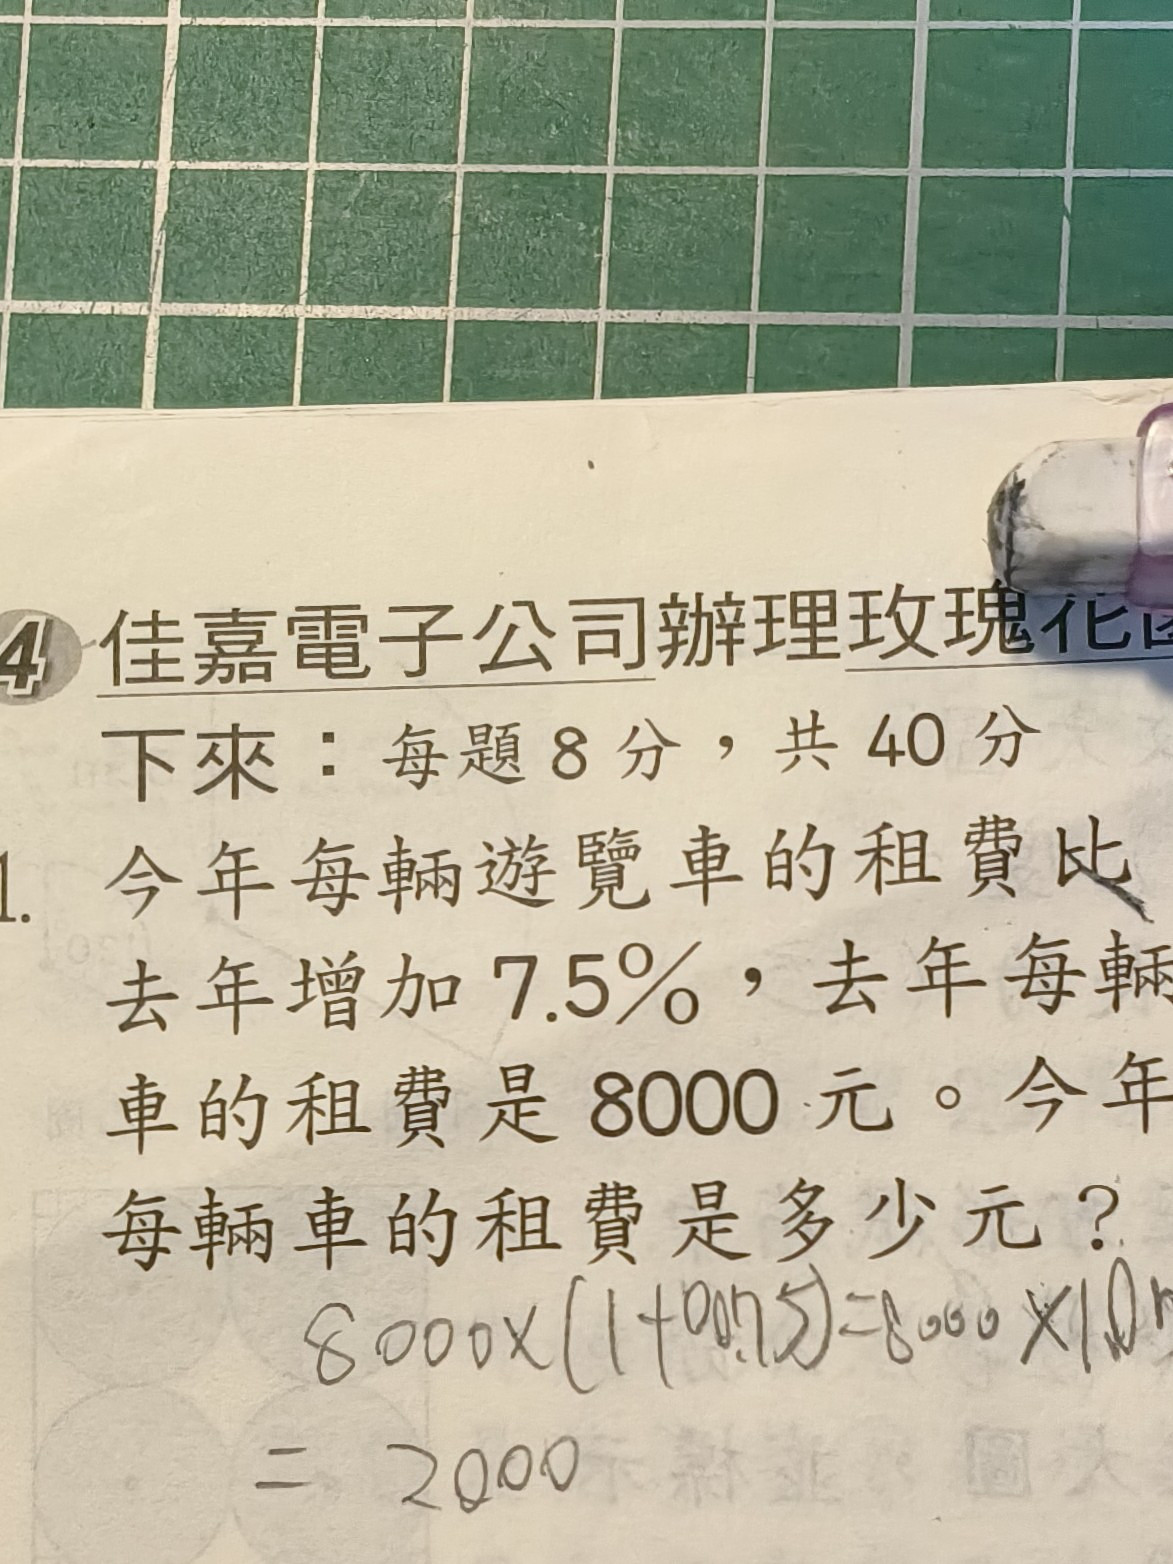 4 佳嘉電子公司辦理玫瑰花
下來：每題 8 分，共 40 分
1. 今年每輛遊覽車的租費比
去年增加 7.5%，去年每輛
車的租費是 8000 元。今年
每輛車的租費是多少元？
8000×(1+0.075)=8000×1.07
= 2000